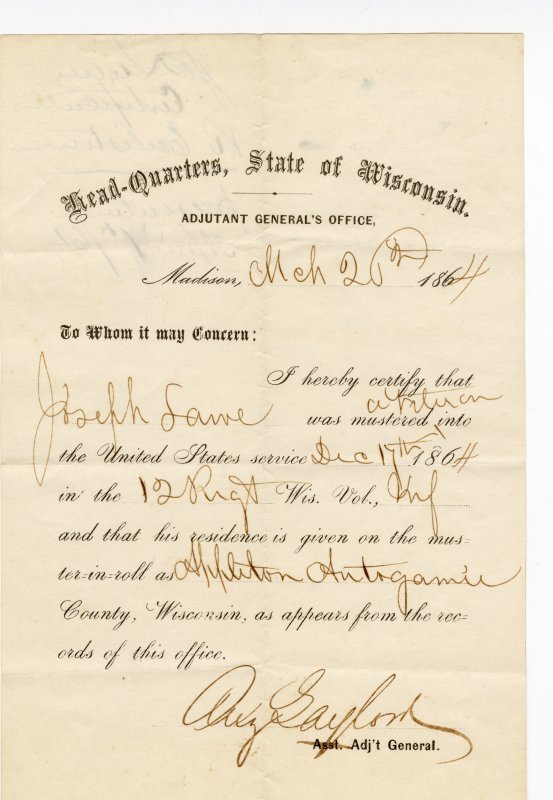 Head-Quarters, State of Wisconsin.
ADJUTANT GENERAL'S OFFICE,
Madison, Mch 20th 1864
To Whom it may Concern:
I hereby certify that
a veteran
Joseph Lawe was mustered into
the United States service Dec 17th 1864
in the 12 Regt Wis. Vol., Inf
and that his residence is given on the mus=
ter=in=roll as Appleton Autogamie
County, Wisconsin, as appears from the rec=
ords of this office.
Aug Gaylord
Asst. Adj't General.